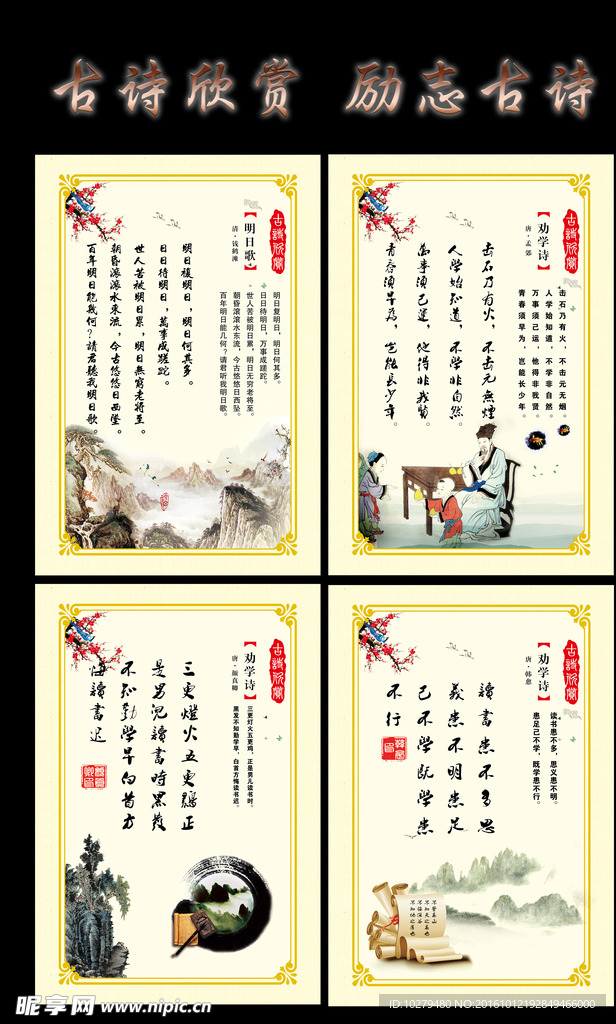 古诗欣赏 励志古诗
古詩欣赏
【明日歌】
清·钱鹤滩
明日复明日,明日何其多。
日日待明日,万事成蹉跎。
世人苦被明日累,明日无穷老将至。
朝昏滚滚水东流,今古悠悠日西坠。
百年明日能几何?请君听我明日歌。
明日複明日,明日何其多。
日日待明日,萬事成蹉跎。
世人苦被明日累,明日無窮老將至。
朝昏滾滾水東流,今古悠悠日西墜。
百年明日能幾何?請君聽我明日歌。
古詩欣赏
【劝学诗】
唐·孟郊
击石乃有火,不击元无烟。
人学始知道,不学非自然。
万事须己运,他得非我贤。
青春须早为,岂能长少年。
击石乃有火,不击元無煙
人學始知道,不學非自然。
萬事須己運,他得非我賢。
青春須早爲,豈能長少年。
古詩欣赏
【劝学诗】
唐·颜真卿
三更灯火五更鸡,正是男儿读书时。
黑发不知勤学早,白首方悔读书迟。
三更燈火五更鷄正
是男兒讀書時黑髮
不知勤學早白首方
悔讀書遲
古詩欣赏
【劝学诗】
唐·韩愈
读书患不多,思义患不明。
患足己不学,既学患不行。
讀書患不多思
義患不明患足
己不學既學患
不行
昵享网 www.nipic.cn
ID:10279480 NO:20161012192849466000